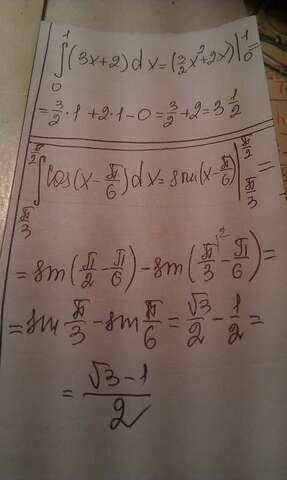 ∫₀¹ (3x+2)dx = (3/2 x² + 2x)|₀¹ =
= 3/2 · 1 + 2·1 − 0 = 3/2 + 2 = 3 1/2
∫_{π/3}^{π/2} cos(x − π/6)dx = sin(x − π/6)|_{π/3}^{π/2} =
= sin(π/2 − π/6) − sin(π/3^{\2} − π/6) =
= sin π/3 − sin π/6 = √3/2 − 1/2 =
= (√3 − 1)/2